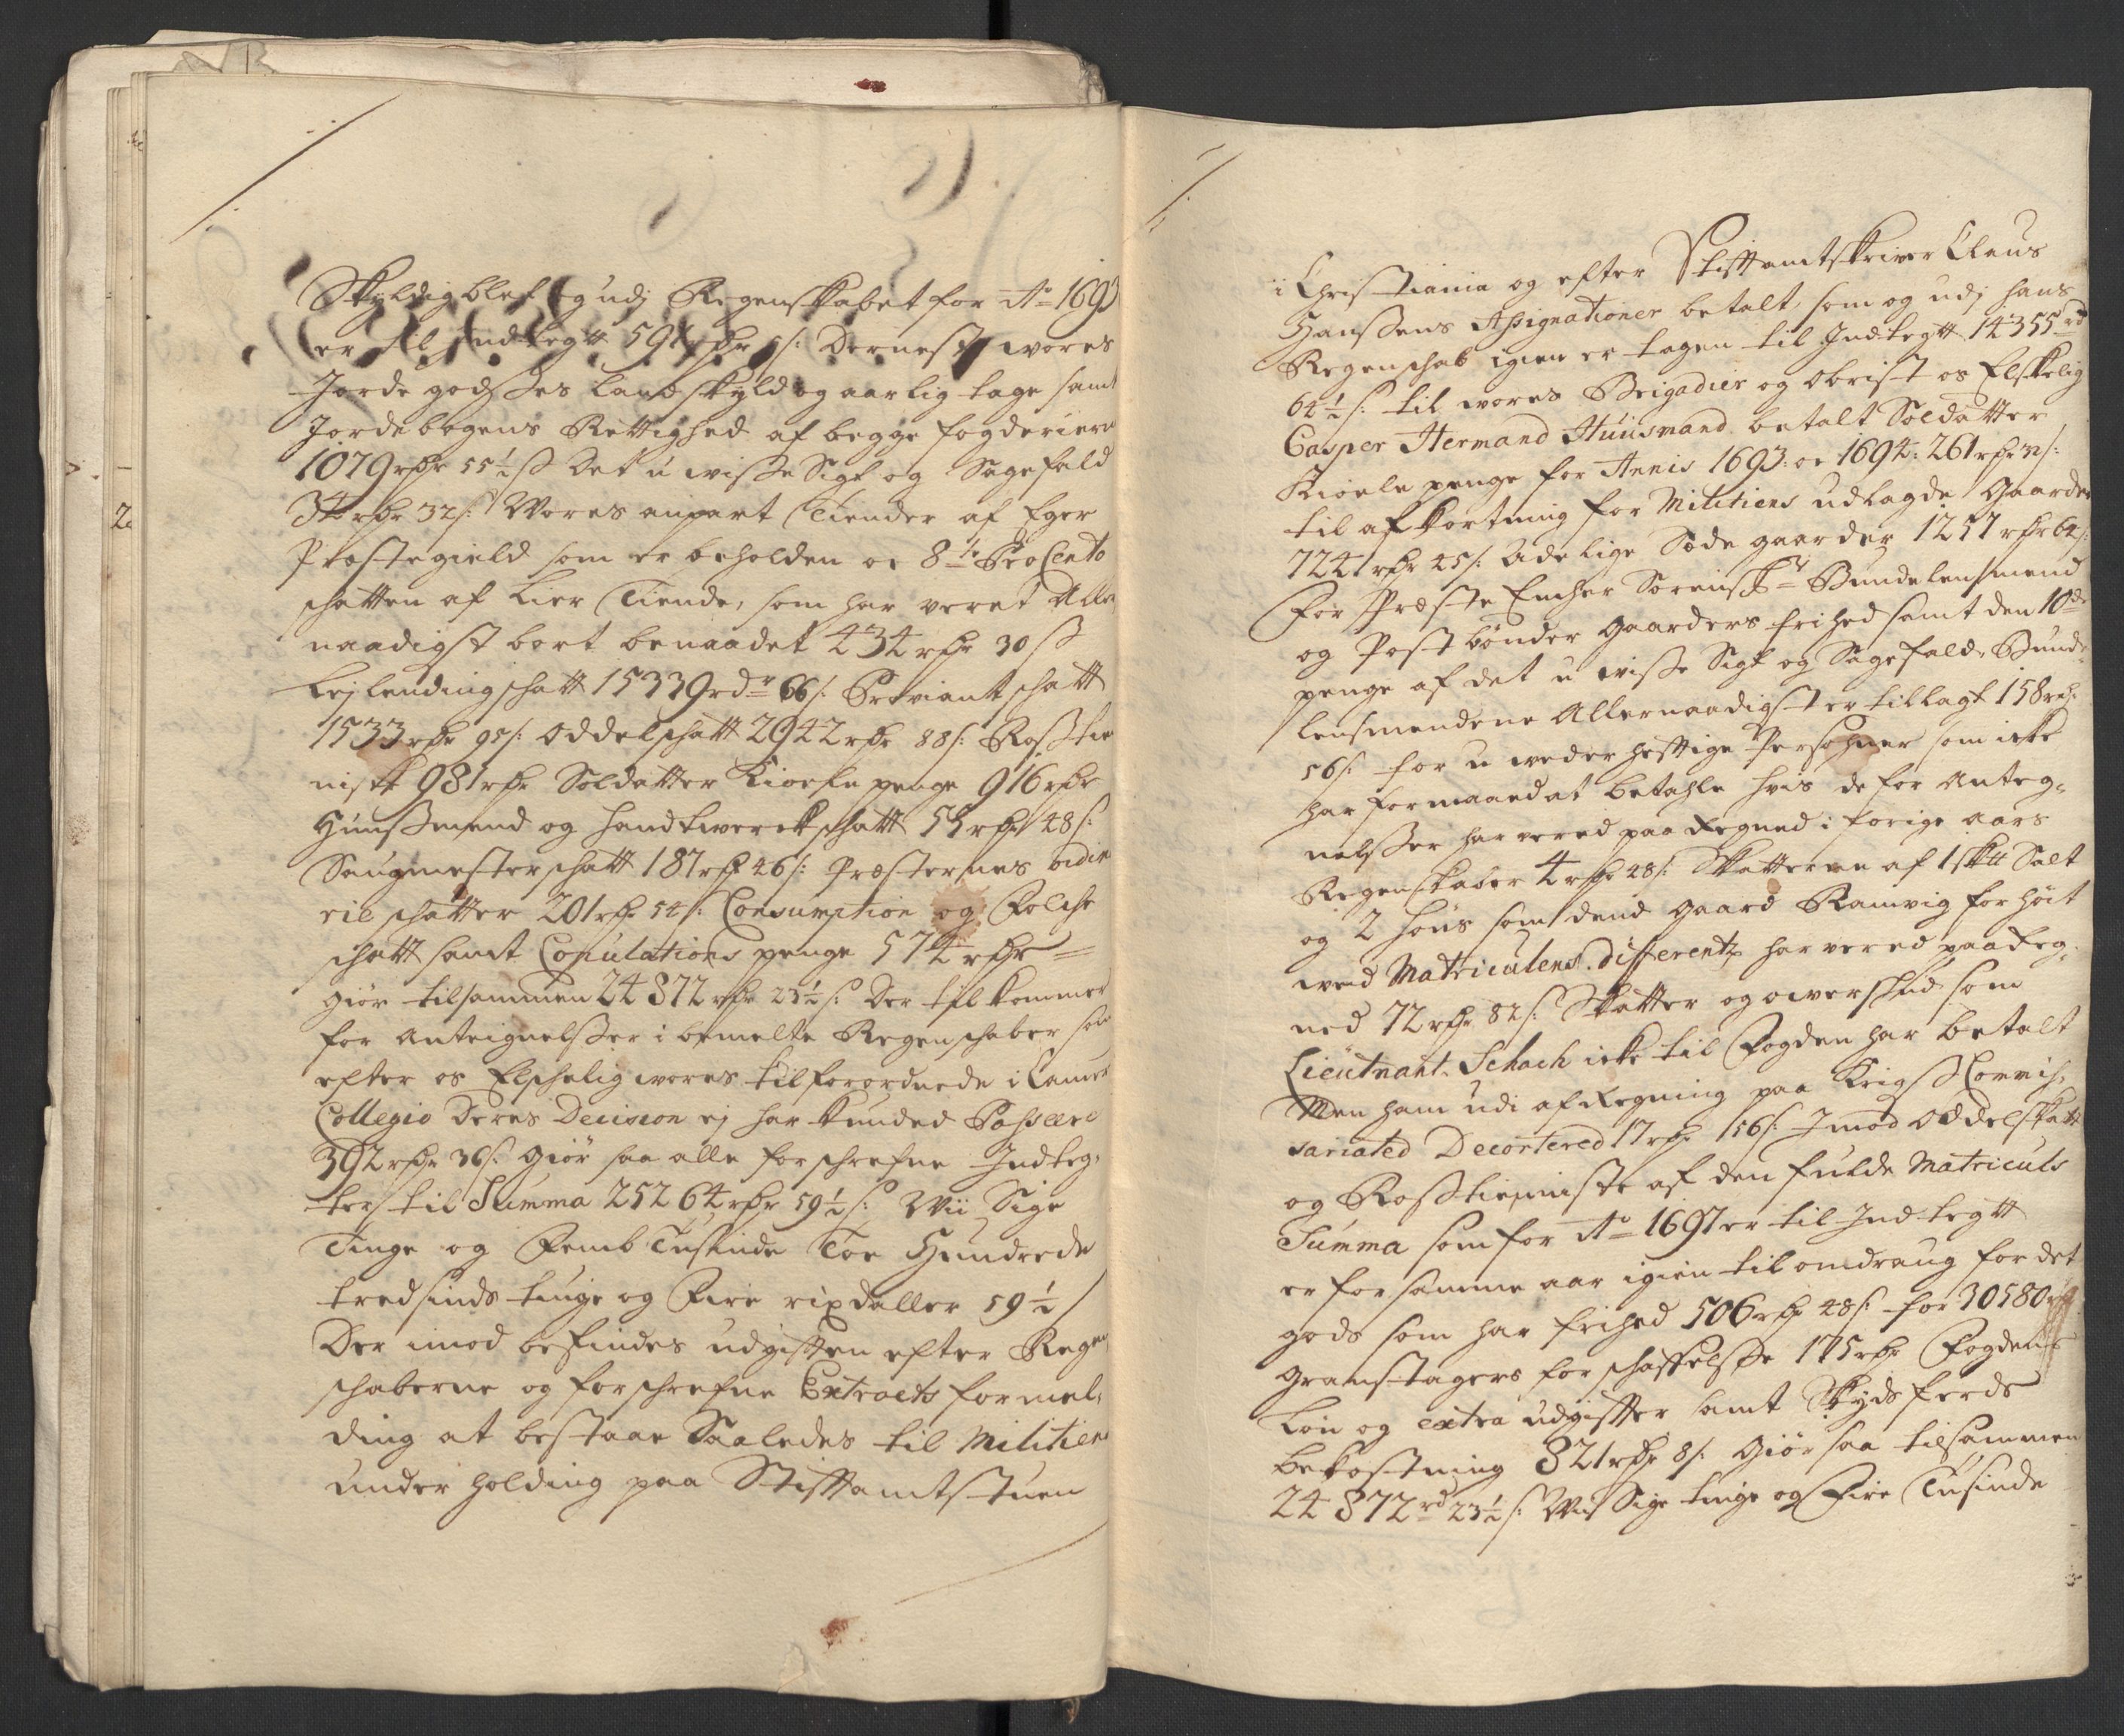 Skyldig blef og udj Regenskabet for Ao 1693
er til Indtegtt 591 rdr s: Dernest vores
Jorde godses landskyld og aarlig tage samt
Jordebogens Rettighed af begge fogderierne
1079 rdr 55½ s Det u visse Sigt og Sagefald
rdr 32 s: Wores anpart Tiender af Eger
Prestegield som er beholden oc 8te ProCento
schatten af Lier Tiende, som har veret Aller
naadigst bort benaadet 434 rdr 30 s
Lejlendingschatt 15339 rdr 66 s: Proviantschatt
1533 rdr 95 s: Oddelschatt 2942 rdr 88 s: Rosstie
niste 981 rdr Soldatter Kioele penge 916 rdr
Huussmend og handtwerckschatt 55 rdr 48 s:
Saugmesterschatt 187 rdr 46 s: Presternes ordin
rie schatter 201 rdr 54 s: Consumption og Folche
schatt samt Copulations penge 574 rdr =
giör tilsammen 24872 rdr 23½ s: Der til kommer
for Anteignelsser i bemelte Regenschaber som
efter os Elschelig vores tilforordnede i Camer
Collegio Deres Decision ej har kunded Passere
392 rdr 36 s: giör saa alle forschrefne Indteg,
ter til Summa 25264 rdr 59½ s: Wii Sige
Tiuge og Femb Tusinde Toe Hundrede
tredsinds tiuge og Fire rixdaller 59½ /
Der imod befindes udgiften efter Regen
schaberne og forschrefne Extracts formel,
ding at bestaae Saaledes til Militiens
underholding paa Stiftamtstuen
i Christiania og efter Stiftamtskriver Claus
Hanssens Assignationer betalt, som og udj hans
Regenschab igien er tagen til Indtegtt 14355 rd
64½ s: til vores Brigadier og Obrist os Elskelig
Casper Hermand Huusmand betalt Soldatter
Kioele penge for Annis 1693: oc 1694: 261 rdr s:
til afkortning for Militiens udlagde Gaarder
7241 rdr 45 s: Adelige Sæde gaarder 1257 rdr 64 s:
for Præste Encher Sorensk: Bundelensmend
og Post bönder Gaarders frihed samt den 10de
penge af det u visse Sigt og Sagefald, Bunde
lensmendene Allernaadigst er tillagt 158 rd:
56 s: for u wederheftige Personer som icke
har formaaed at betahle hvis de for Anteg,
nelsser har vered paa Regned i forige aars
Regenskaber 4 rdr 28 s: Skatterne af 1 sktt Salt
og 2 höns som dend gaard Ramvig for höit
wed Matriculens differentz har vered paa Reg,
ned 72 rdr 82 s: Skatter og overskud som
Lieutnant Schach icke til Fogden har betalt
Men ham udi afRegning paa Krigss Commis,
sariated Decortered 17 rdr 156 s: Jmod Oddelskatt
og Rosstienniste af den fulde Matriculs
Summa som for Ao 1697 er til Indtegtt
er for samme aar igien til omdraug for det
gods som har frihed 506 rdr 48 s: for 30580
granstagers forschaffelsse 175 rdr Fogdens
Lön og extra udgifter samt Skydsferds
bekostning 821 rdr 8 s: Giör saa tilsammen
24872 rd 23½ s: Wii Sige tiuge og Fire Tusinde